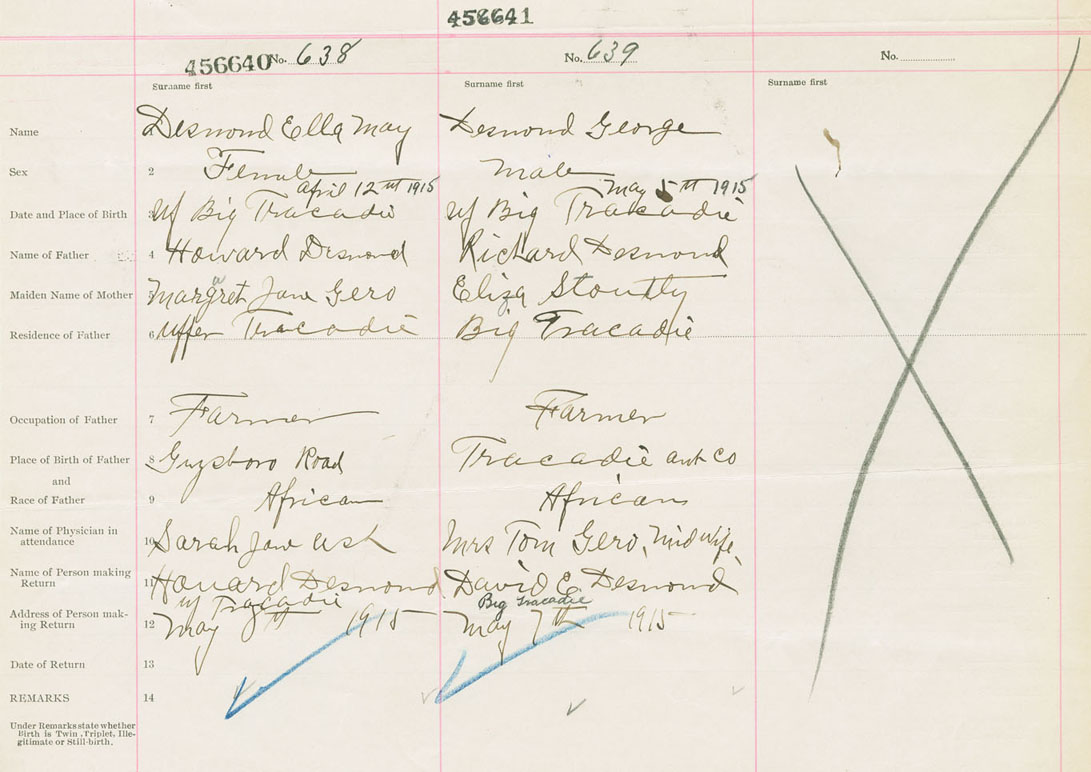 456641
456640 No. 638 No. 639 No.
Surname first Surname first Surname first
Name Desmond Ella May Desmond George
Sex 2 Female Male
April 12th 1915 May 5th 1915
Date and Place of Birth 3 Big Tracadie Big Tracadie
Name of Father 4 Howard Desmond Richard Desmond
Maiden Name of Mother 5 Margret Jane Gero Eliza
Residence of Father 6 Upper Tracadie Big Tracadie
Occupation of Father 7 Farmer Farmer
Place of Birth of Father 8 Guysboro Road Tracadie ant co
and
Race of Father 9 African African
Name of Physician in
attendance 10 Sarah Jane Ash Mrs Tom Gero, Midwife
Name of Person making
Return 11 Howard Desmond David E Desmond
Tracadie Big Tracadie
Address of Person mak-
ing Return 12 May 1915 May 7th 1915
Date of Return 13
REMARKS 14
Under Remarks state whether
Birth is Twin, Triplet, Ille-
gitimate or Still-birth.